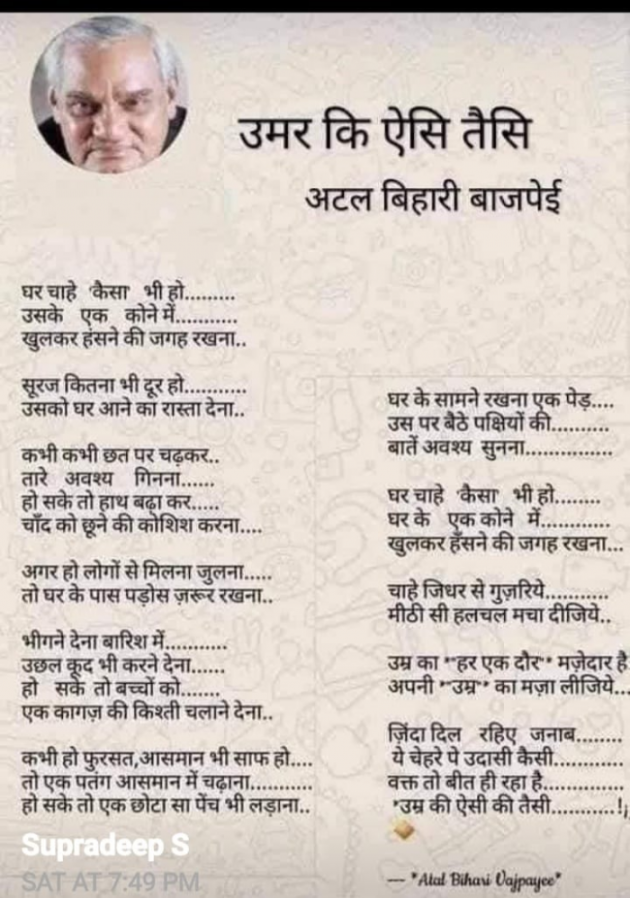 उमर कि ऐसि तैसि
अटल बिहारी बाजपेई
घर चाहे 'कैसा' भी हो.........
उसके एक कोने में............
खुलकर हंसने की जगह रखना..
सूरज कितना भी दूर हो...........
उसको घर आने का रास्ता देना..
कभी कभी छत पर चढ़कर..
तारे अवश्य गिनना......
हो सके तो हाथ बढ़ा कर.....
चाँद को छूने की कोशिश करना....
अगर हो लोगों से मिलना जुलना.....
तो घर के पास पड़ोस ज़रूर रखना..
भीगने देना बारिश में...........
उछल कूद भी करने देना......
हो सके तो बच्चों को.......
एक कागज़ की किश्ती चलाने देना..
कभी हो फुरसत,आसमान भी साफ हो....
तो एक पतंग आसमान में चढ़ाना...........
हो सके तो एक छोटा सा पेंच भी लड़ाना..
घर के सामने रखना एक पेड़....
उस पर बैठे पक्षियों की..........
बातें अवश्य सुनना...............
घर चाहे 'कैसा' भी हो........
घर के एक कोने में............
खुलकर हँसने की जगह रखना...
चाहे जिधर से गुज़रिये...........
मीठी सी हलचल मचा दीजिये..
उम्र का *"हर एक दौर"* मज़ेदार है
अपनी *"उम्र"* का मज़ा लीजिये...
ज़िंदा दिल रहिए जनाब........
ये चेहरे पे उदासी कैसी............
वक्त तो बीत ही रहा है............
*उम्र की ऐसी की तैसी...........!
— *Atal Bihari Vajpayee*
Supradeep S
SAT AT 7:49 PM